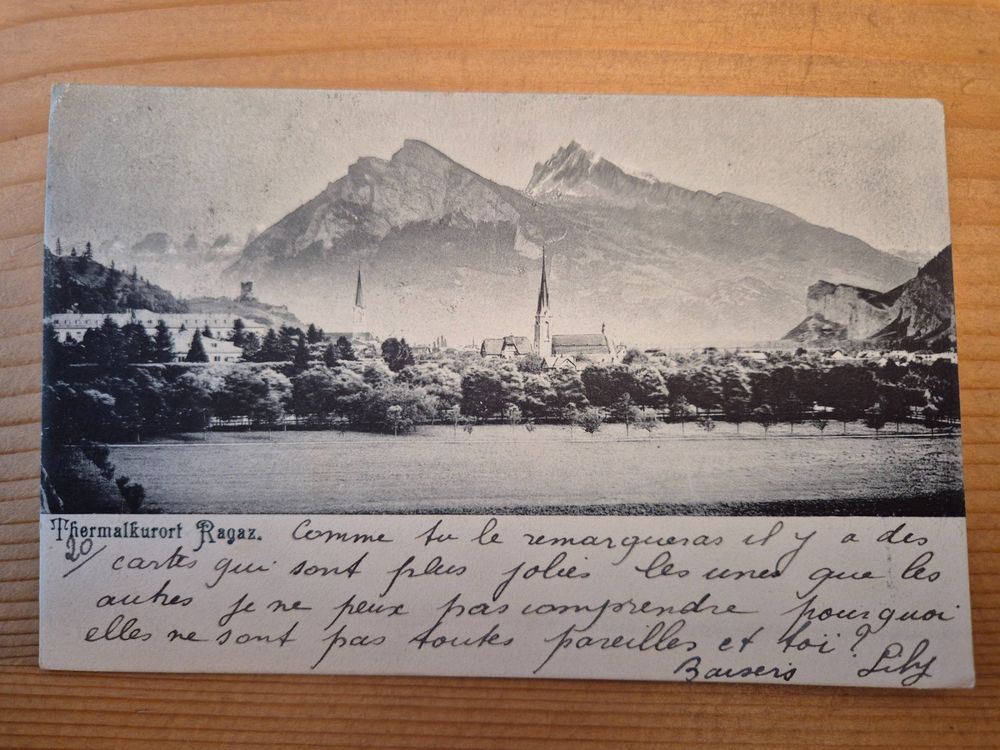 Thermalkurort Ragaz. Comme tu le remarqueras il y a des
20/ cartes qui sont plus jolies les unes que les
autres je ne peux pas comprendre pourquoi
elles ne sont pas toutes pareilles et toi?
Baisers Lily